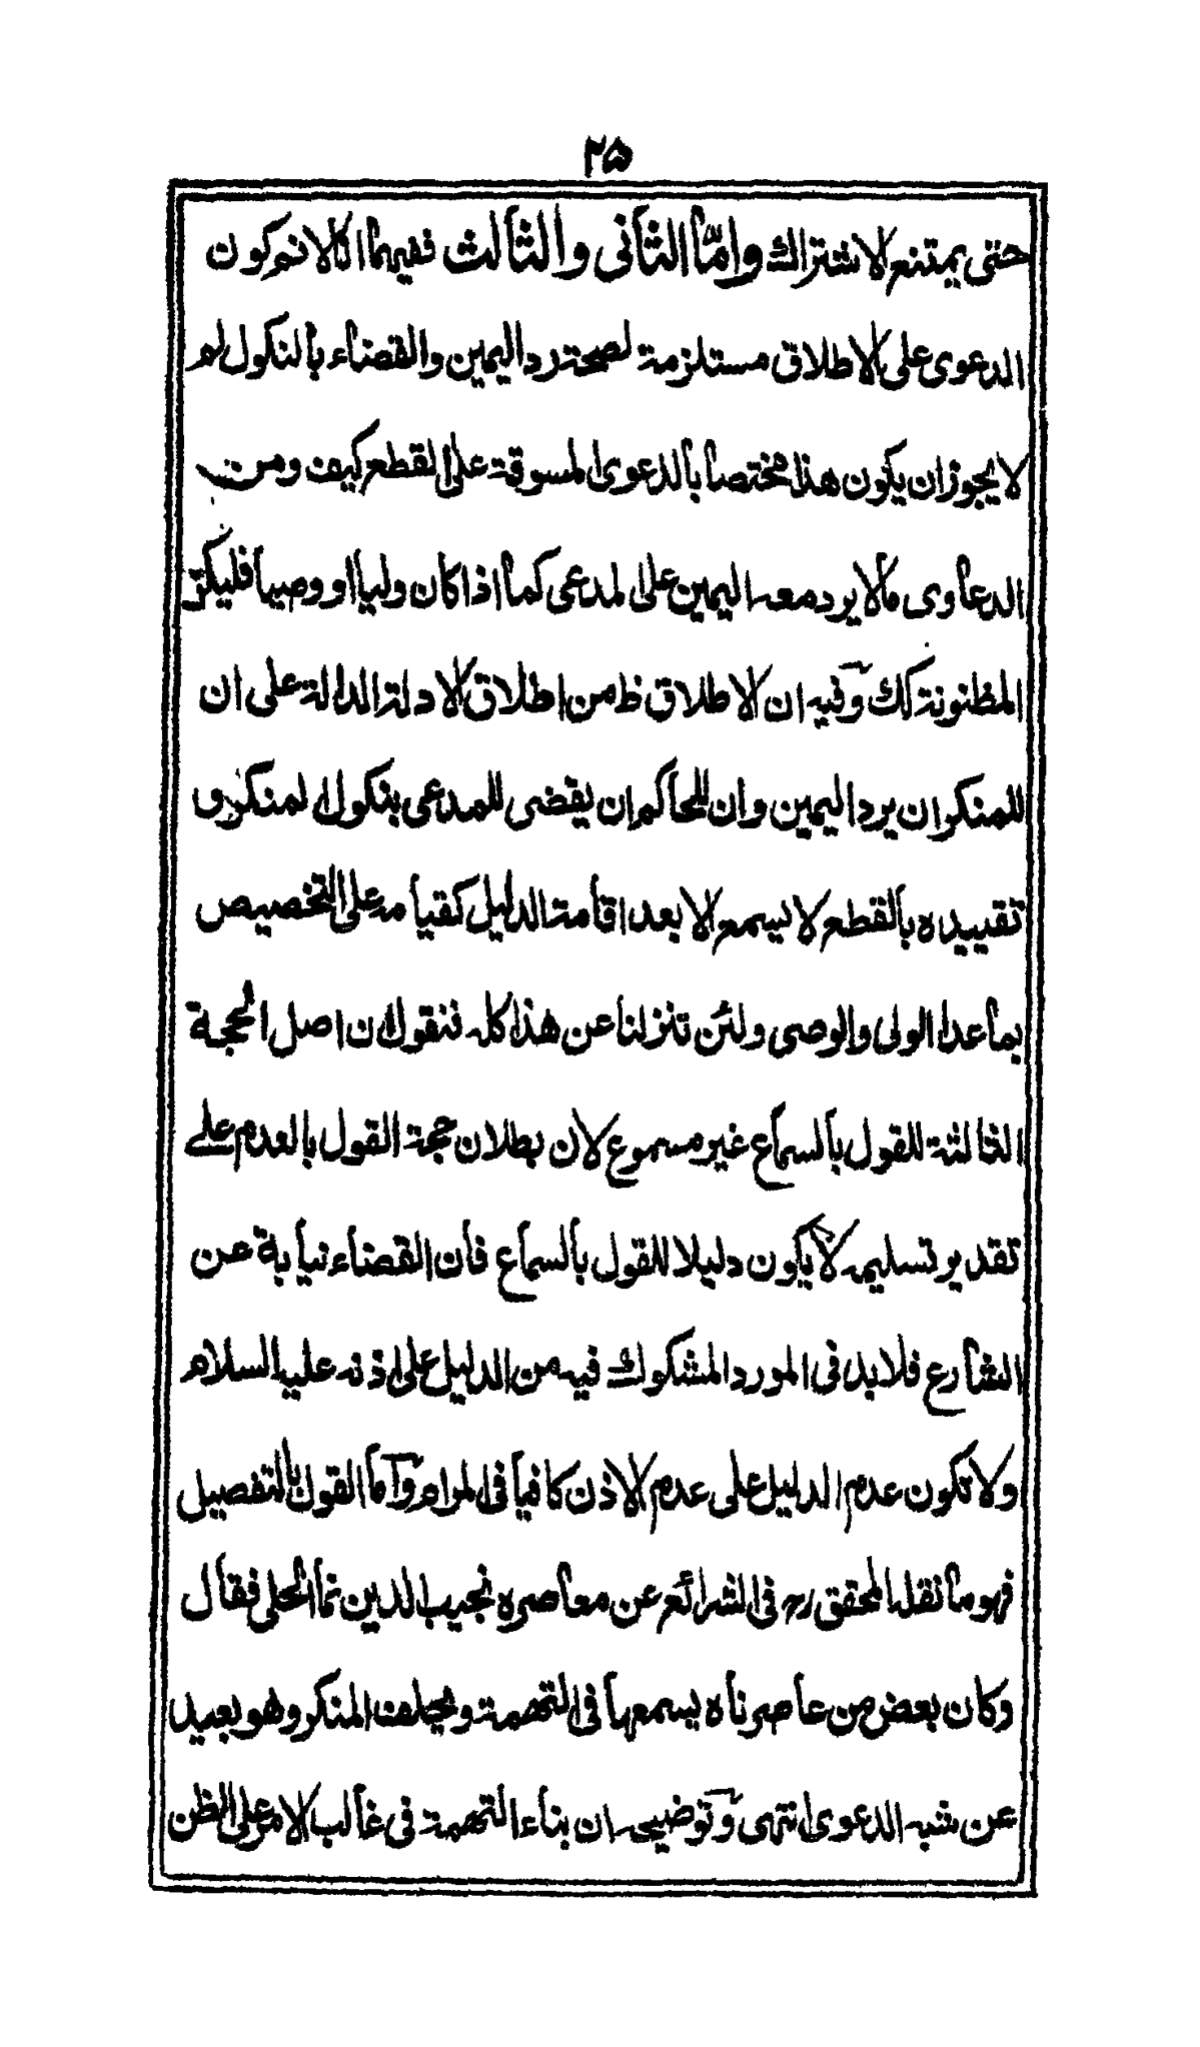 ۲۵
حتى يمتنع الاشتراك وامّا الثانى والثالث ففيهما انا لانم كون
الدعوى على الاطلاق مستلزمة لصحة رد اليمين والقضاء بالنكول لم
لا يجوز ان يكون هذا مختصا بالدعوى المسوقة على القطع كيف ومن
الدعاوى مالا يرد معه اليمين على المدعى كما اذا كان وليا او وصيا فليكن
المظنونة كك وفيه ان الاطلاق ظ من اطلاق الادلة الدالة على ان
للمنكر ان يرد اليمين وان للحاكم ان يقضى للمدعى بنكول المنكر و
تقييده بالقطع لا يسمع الا بعد اقامة الدليل كقيامه على التخصيص
بما عدا الولى والوصى ولئن تنزلنا عن هذا كله فنقول ان اصل الحجة
الثالثة للقول بالسماع غير مسموع لان بطلان حجة القول بالعدم على
تقدير تسليمه لا يكون دليلا للقول بالسماع فان القضاء نيابة عن
الشارع فلا بد فى المورد المشكوك فيه من الدليل على اذنه عليه السلام
ولا تكون عدم الدليل على عدم الاذن كافيا فى المرام وآما القول بالتفصيل
فهو ما نقله المحقق ره فى الشرائع عن معاصره نجيب الدين نما الحلى فقال
وكان بعض من عاصرناه يسمعها فى التهمة ويحلف المنكر وهو بعيد
عن شبه الدعوى انتهى وتوضيحه ان بناء التهمة فى غالب الامر على الظن